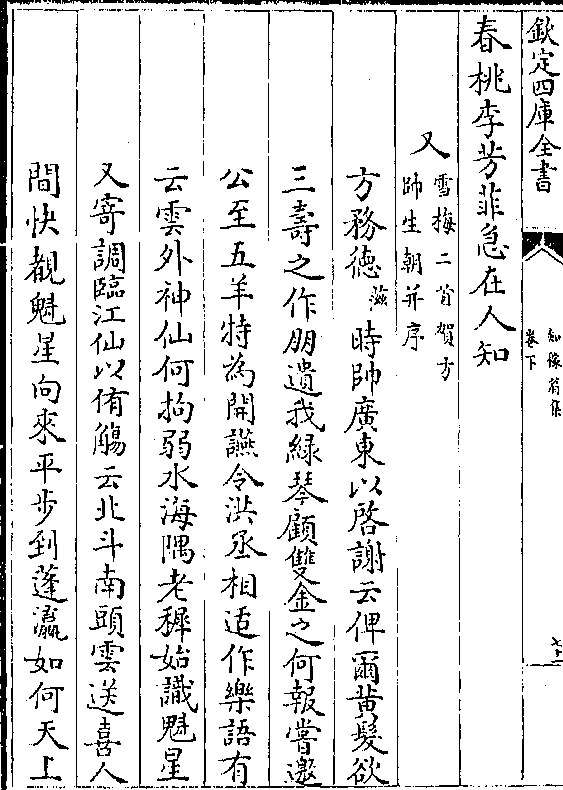 欽定四庫全書
知稼翁集
卷下
七十二
春桃李芳菲急在人知
又雪梅二首賀方
帥生朝并序
方務德滋時帥廣東以啓謝云俾爾黃髮欲
三壽之作朋遺我緑琴顧雙金之何報嘗邀
公至五羊特為開讌令洪丞相适作樂語有
云雲外神仙何拘弱水海隅老穉始識魁星
又寄調臨江仙以侑觴云北斗南頭雲送喜人
間快覩魁星向來平步到蓬瀛如何天上